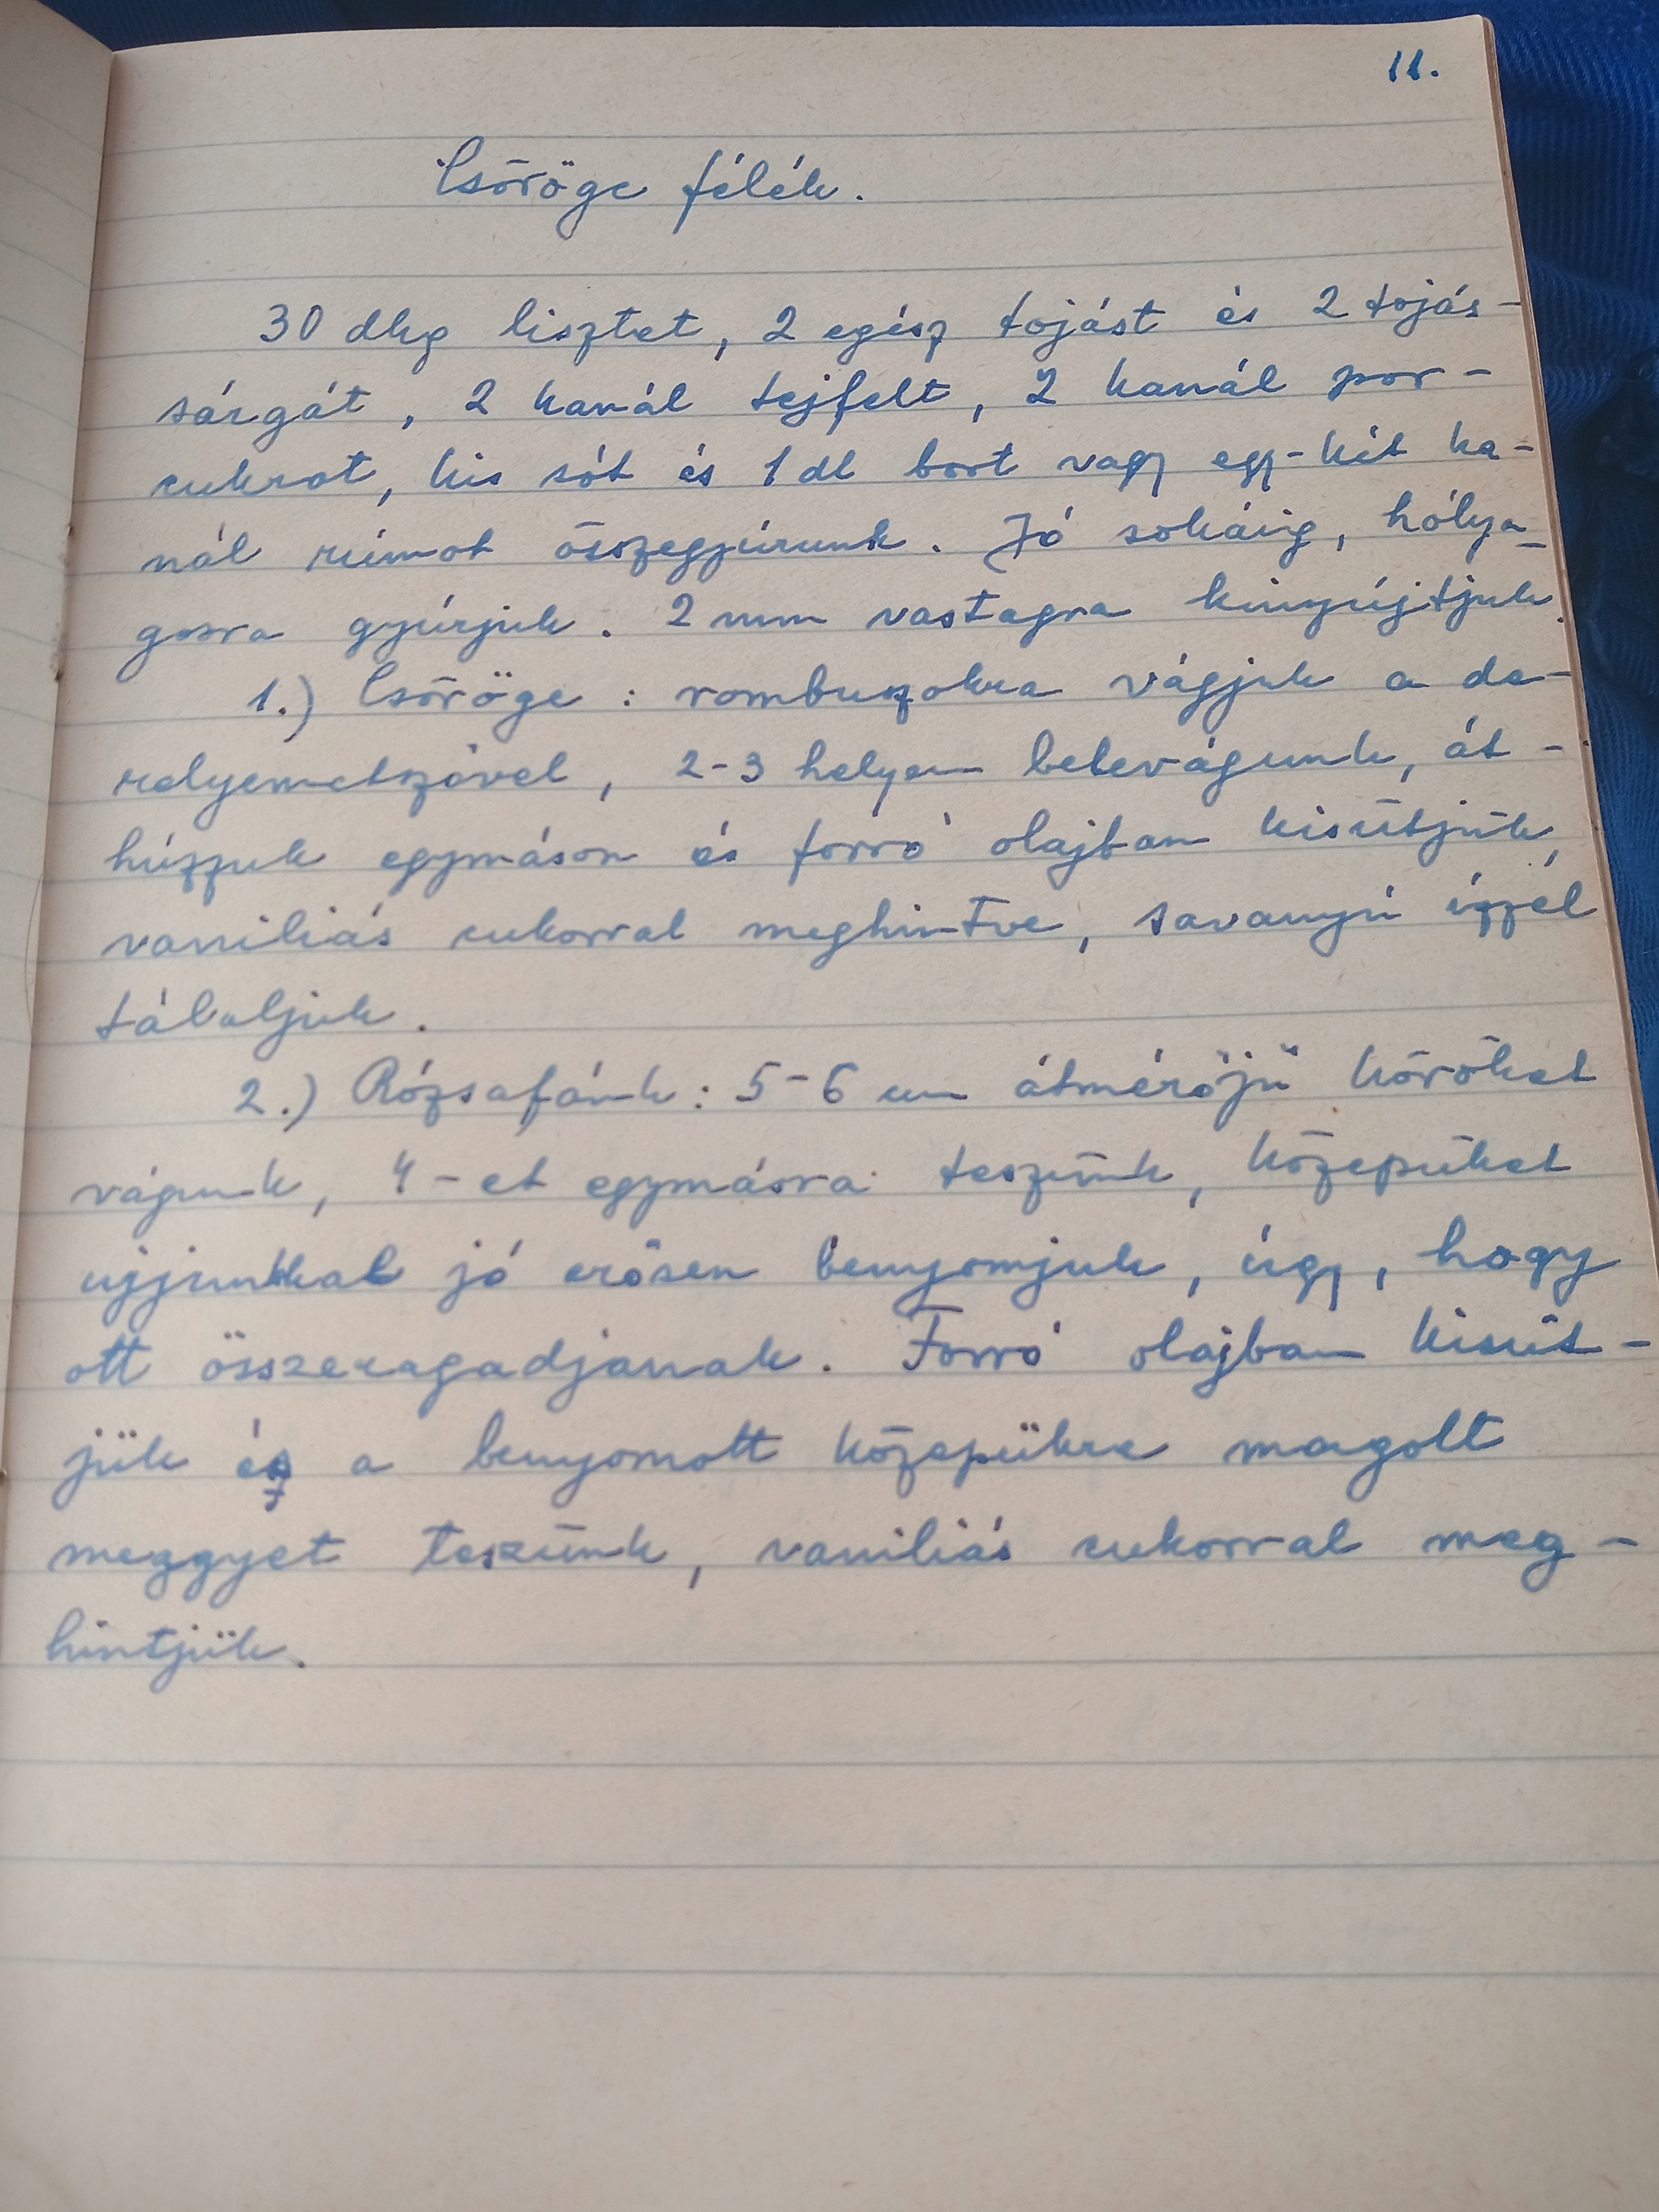 11.
Csöröge félék.
30 dkg lisztet, 2 egész tojást és 2 tojás-
sárgát, 2 kanál tejfelt, 2 kanál por-
cukrot, kis sót és 1 dl bort vagy egy-két ka-
nál rúmot összegyúrunk. Jó sokáig, hólya-
gosra gyúrjuk. 2 mm vastagra kinyújtjuk.
1.) Csöröge: rombuszokra vágjuk a de-
relyemetszővel, 2-3 helyen belevágunk, át-
húzzuk egymáson és forró olajban kisütjük,
vaniliás cukorral meghintve, savanyú ízzel
tálaljuk.
2.) Rózsafánk: 5-6 cm átmérőjű köröket
vágunk, 4-et egymásra teszünk, közepüket
ujjunkkal jó erősen benyomjuk, úgy, hogy
ott összeragadjanak. Forró olajban kisüt-
jük és a benyomott közepükre magolt
meggyet teszünk, vaniliás cukorral meg-
hintjük.